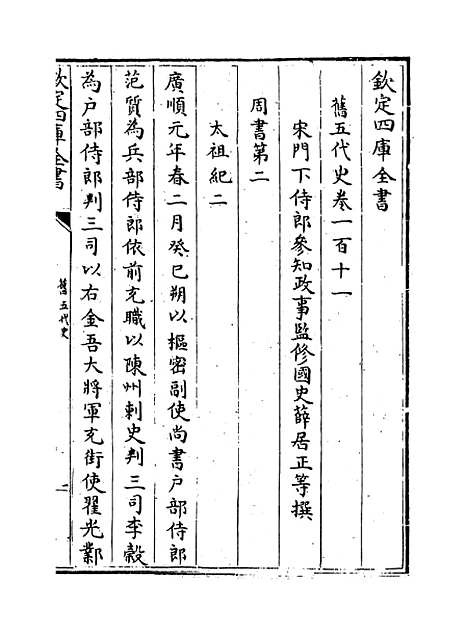 欽定四庫全書
舊五代史卷一百十一
宋門下侍郎參知政事監修國史薛居正等撰
周書第二
太祖紀二
廣順元年春二月癸巳朔以樞密副使尚書戶部侍郎
范質為兵部侍郎依前充職以陳州刺史判三司李穀
為戶部侍郎判三司以右金吾大將軍充街使翟光鄴
欽定四庫全書
舊五代史